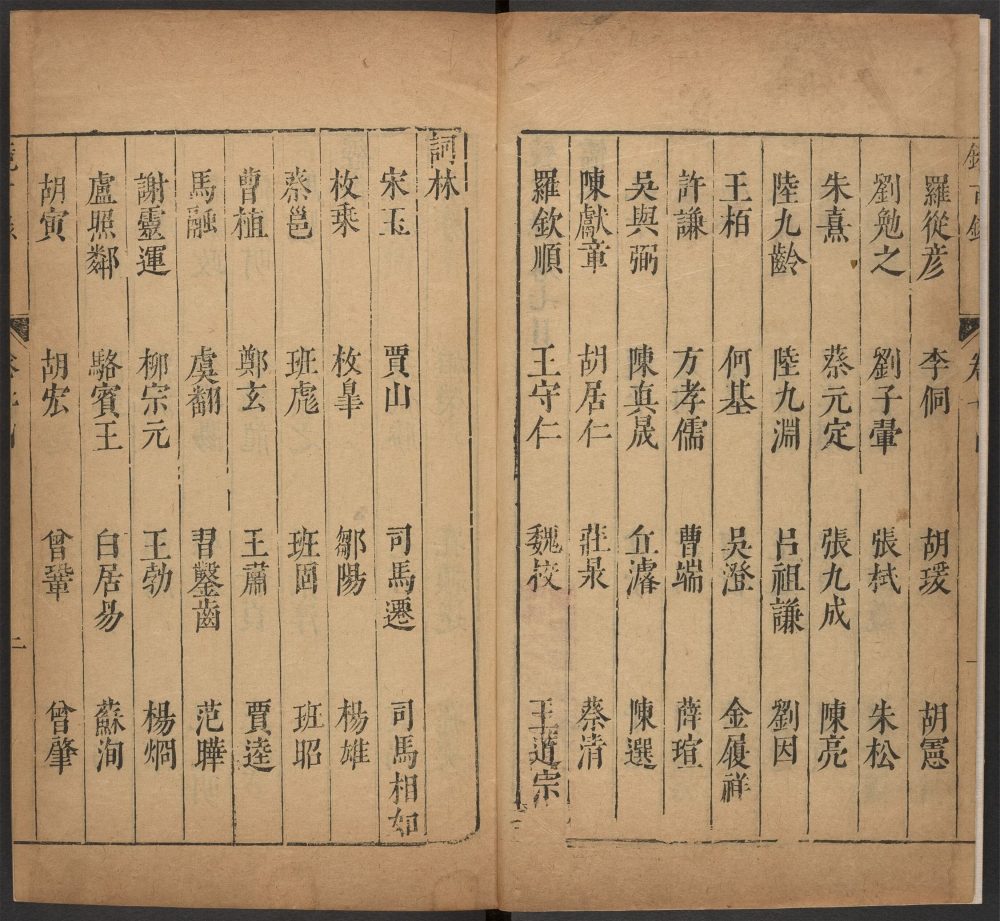 羅從彦 李侗 胡瑗 胡憲
劉勉之 劉子翬 張栻 朱松
朱熹 蔡元定 張九成 陳亮
陸九齡 陸九淵 呂祖謙 劉因
王柏 何基 吳澄 金履祥
許謙 方孝儒 曹端 薛瑄
吳與弼 陳真晟 丘濬 陳選
陳獻章 胡居仁 莊昶 蔡清
羅欽順 王守仁 魏校 王道宗
詞林
宋玉 賈山 司馬遷 司馬相如
枚乘 枚皐 鄒陽 楊雄
蔡邕 班彪 班固 班昭
曹植 鄭玄 王肅 賈逵
馬融 虞翻 習鑿齒 范曄
謝靈運 柳宗元 王勃 楊烱
盧照鄰 駱賓王 白居易 蘇洵
胡寅 胡宏 曾鞏 曾肇